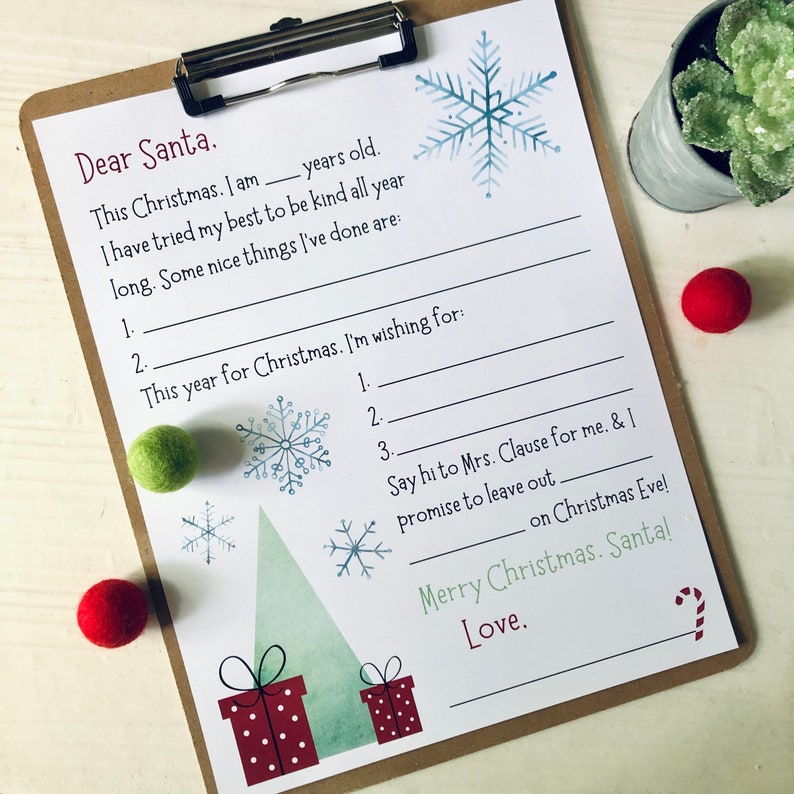 Dear Santa,
This Christmas, I am ___ years old.
I have tried my best to be kind all year
long. Some nice things I've done are:
1. ___
2. ___
This year for Christmas, I'm wishing for:
1. ___
2. ___
3. ___
Say hi to Mrs. Clause for me, & I
promise to leave out ___
___ on Christmas Eve!
Merry Christmas, Santa!
Love,